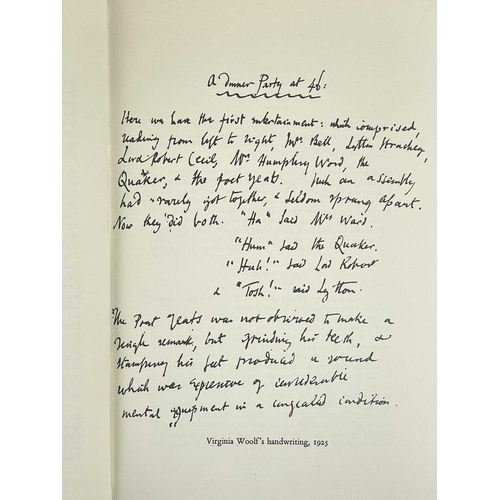 A Dinner Party at 46:
Here we have the first entertainment: which comprised,
reading from left to right, Mrs Bell, Lytton Strachey,
Lord Robert Cecil, Mrs Humphry Ward, the
Quaker, & the poet Yeats. Such an assembly
had rarely got together, & seldom sprung apart.
Now they did both. "Ha" said Mrs Ward.
"Hum" said the Quaker.
"Huh!" said Lord Robert
& "Tosh!" said Lytton.
The Poet Yeats was not observed to make a
single remark, but grinding his teeth, &
stamping his feet produced a sound
which was expressive of
mental equipment in a congealed condition.
Virginia Woolf's handwriting, 1925